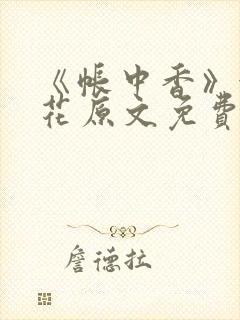 《帐中香》
花原文免费
詹德拉